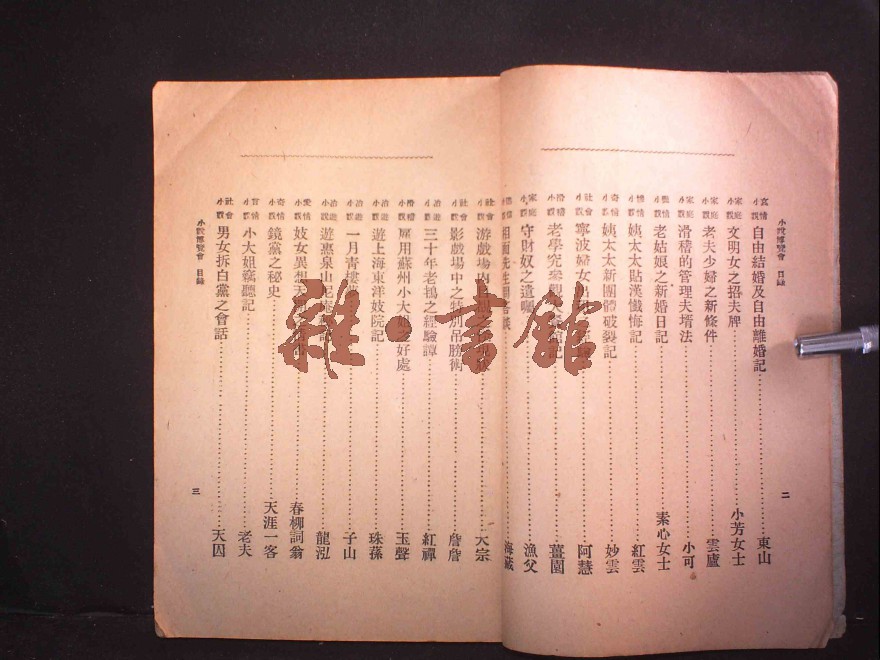 小說博覽會 目錄
哀情小說 自由結婚及自由離婚記 東山
家庭小說 文明女之招夫牌 小芳女士
家庭小說 老夫少婦之新條件 雲廬
家庭小說 滑稽的管理夫壻法 小可
小說 老姑娘之新婚日記 素心女士
小說 姨太太貼漢懺悔記 紅雲
奇情小說 姨太太新團體破裂記 妙雲
社會小說 寧波婦女 阿慧
滑稽小說 老學究 記 薑園
家庭小說 守財奴之遺囑 漁父
先生
二
社會小說 游戲場內 之 天宗
社會小說 影戲場中之特別吊膀術 詹詹
冶遊小說 三十年老鴇之經驗譚 紅禪
滑稽小說 雇用蘇州小大姐之好處 玉聲
冶遊小說 遊上海東洋妓院記 珠蓀
冶遊小說 一月青樓 子山
冶遊小說 遊惠泉山尼庵 龍泓
愛情小說 妓女異想天開 春柳詞翁
奇情小說 鏡黨之秘史 天涯一客
言情小說 小大姐竊聽記 老夫
社會小說 男女拆白黨之會話 天囚
小說博覽會 目錄
三
雜·書館